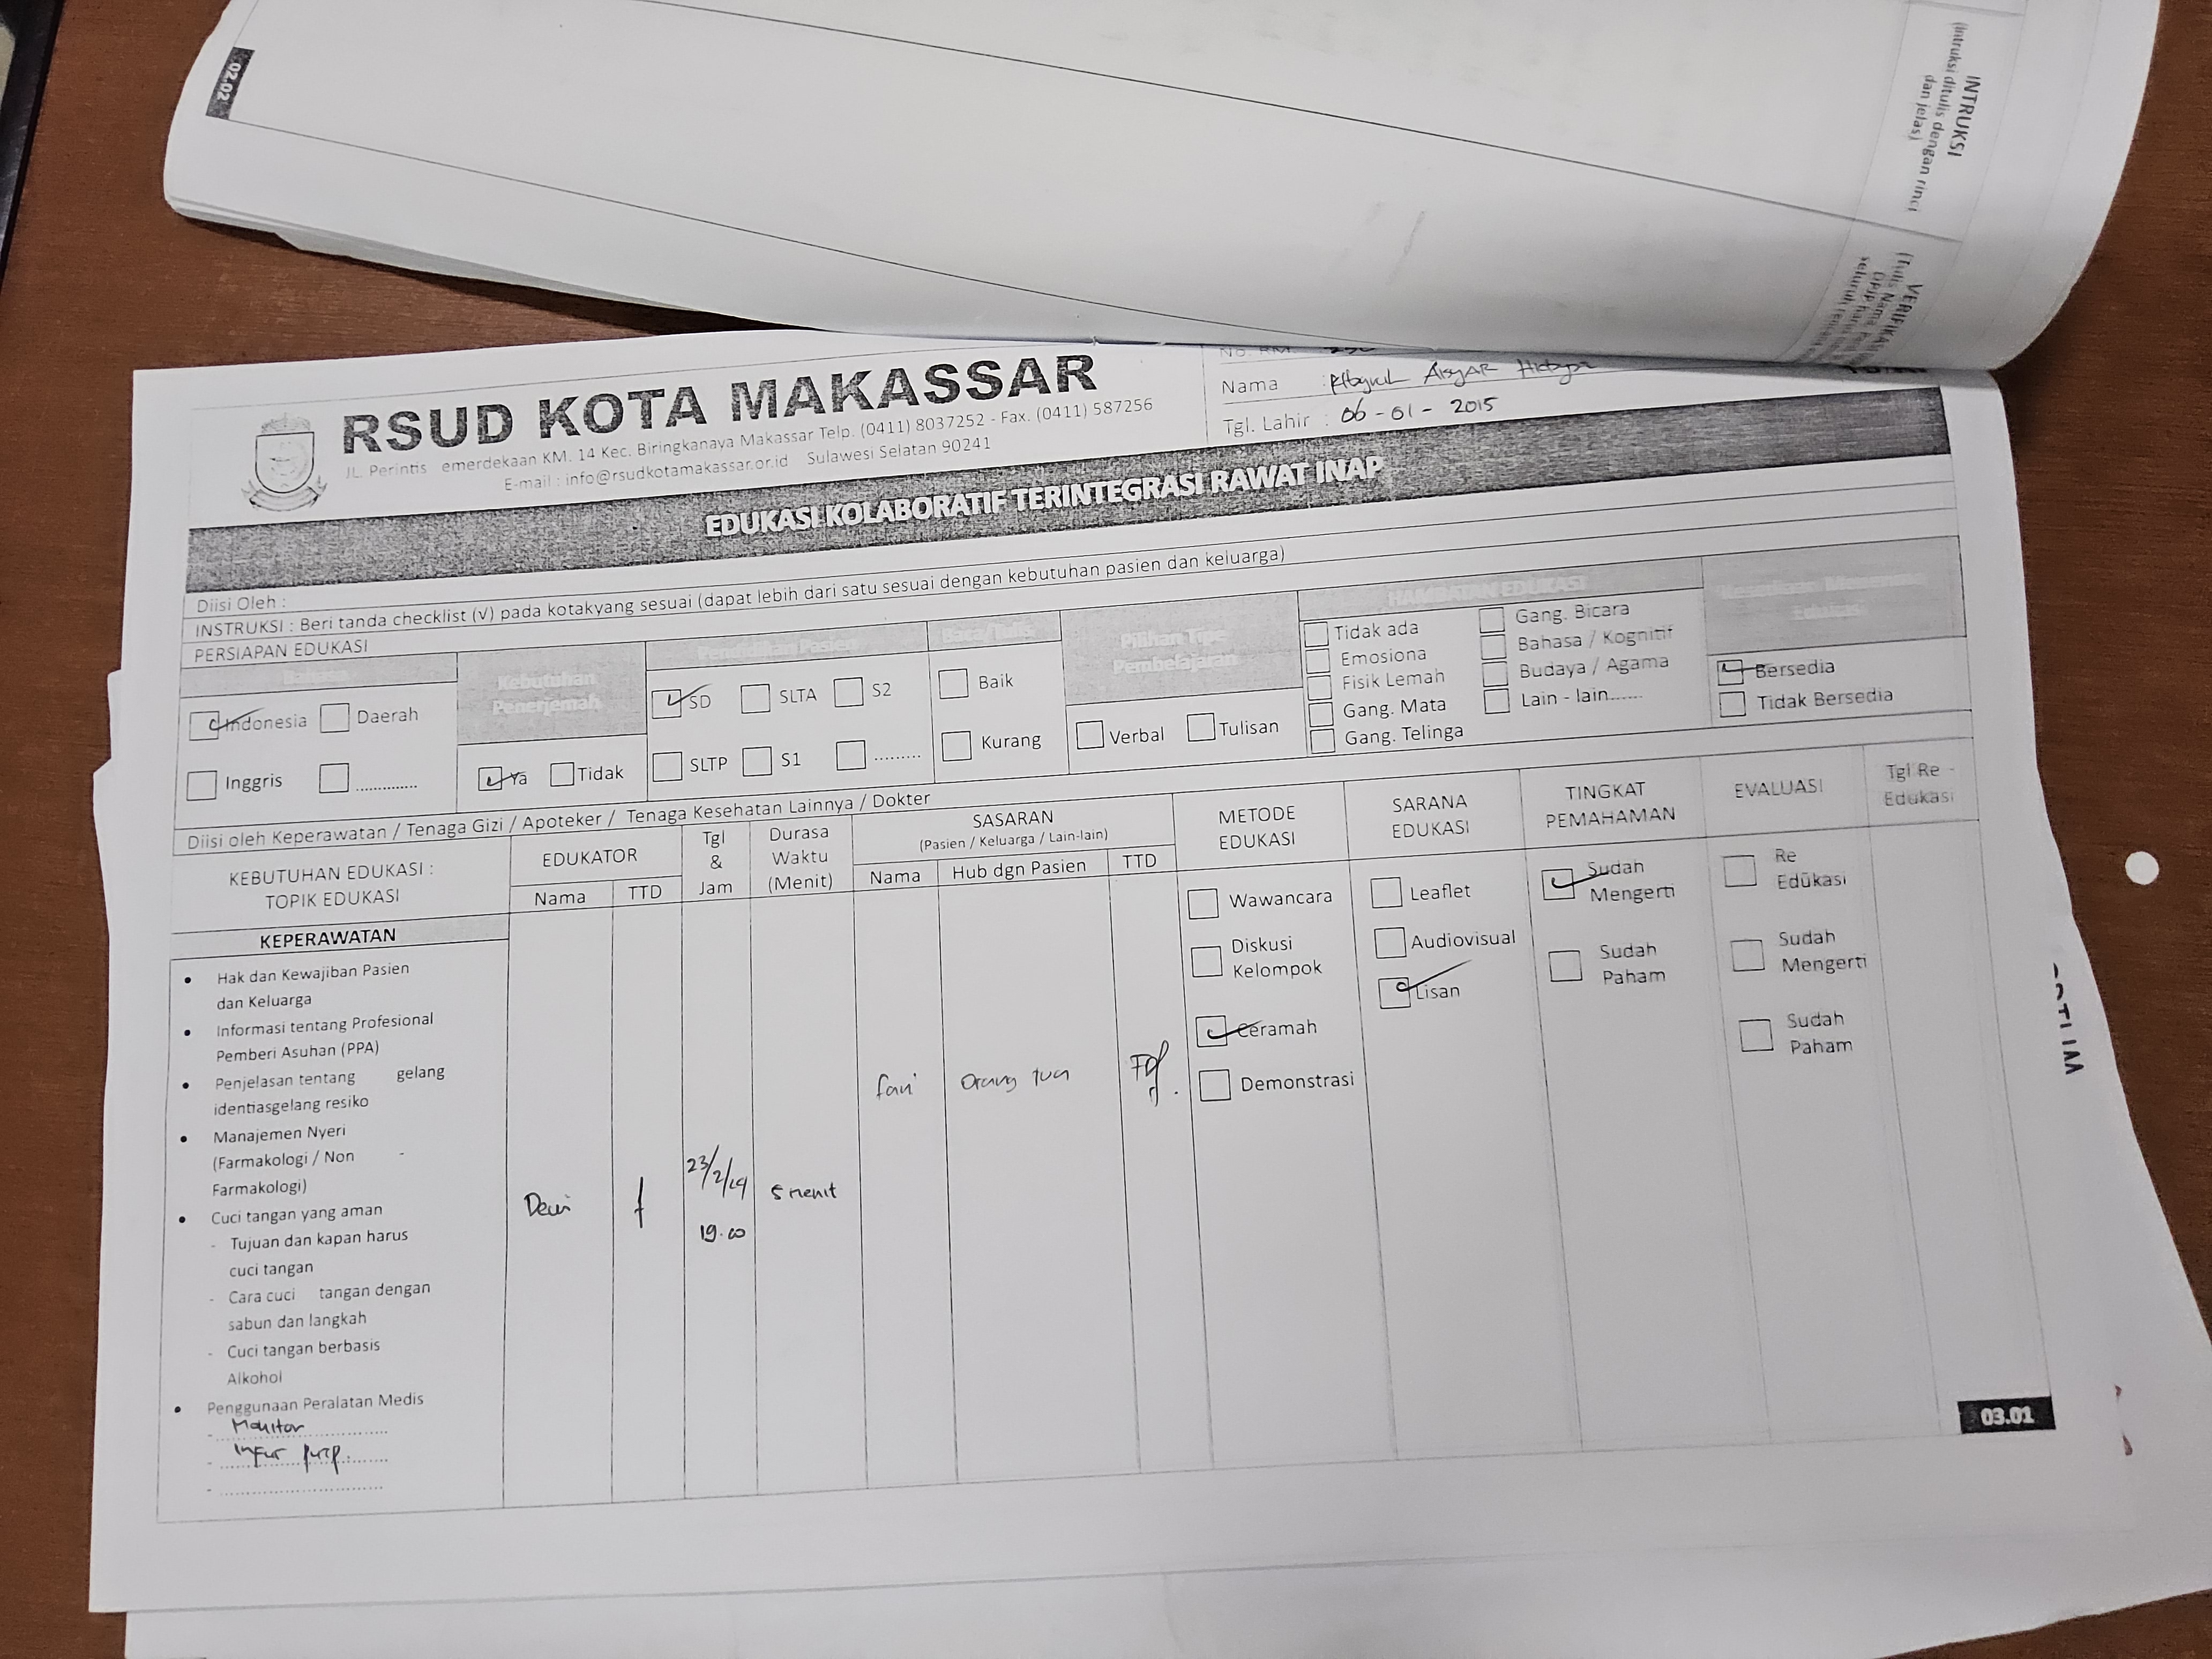 02.02
INTRUKSI
(intruksi ditulis dengan rinci
dan jelas)
VERIFIKA
(Tulis Nama,
DPJP harus
seluruh
RSUD KOTA MAKASSAR
JL. Perintis emerdekaan KM. 14 Kec. Biringkanaya Makassar Telp. (0411) 8037252 - Fax. (0411) 587256
E-mail : info@rsudkotamakassar.or.id Sulawesi Selatan 90241
No. RM.
Nama :
Tgl. Lahir : 06 - 01 - 2015
EDUKASI KOLABORATIF TERINTEGRASI RAWAT INAP
Diisi Oleh :
INSTRUKSI : Beri tanda checklist (√) pada kotakyang sesuai (dapat lebih dari satu sesuai dengan kebutuhan pasien dan keluarga)
PERSIAPAN EDUKASI
Bahasa
Indonesia Daerah
Inggris ..............
Kebutuhan
Penerjemah
Ya Tidak
Pendidikan Pasien
SD SLTA S2
SLTP S1 .........
Baca/Tulis
Baik
Kurang
Pilihan Tipe
Pembelajaran
Verbal Tulisan
HAMBATAN EDUKASI
Tidak ada Gang. Bicara
Emosiona Bahasa / Kognitif
Fisik Lemah Budaya / Agama
Gang. Mata Lain - lain......
Gang. Telinga
Kesediaan Menerima
Edukasi
Bersedia
Tidak Bersedia
Diisi oleh Keperawatan / Tenaga Gizi / Apoteker / Tenaga Kesehatan Lainnya / Dokter
KEBUTUHAN EDUKASI :
TOPIK EDUKASI
EDUKATOR
Nama TTD
Tgl
&
Jam
Durasa
Waktu
(Menit)
SASARAN
(Pasien / Keluarga / Lain-lain)
Nama Hub dgn Pasien TTD
METODE
EDUKASI
SARANA
EDUKASI
TINGKAT
PEMAHAMAN
EVALUASI
Tgl Re -
Edukasi
KEPERAWATAN
• Hak dan Kewajiban Pasien
dan Keluarga
• Informasi tentang Profesional
Pemberi Asuhan (PPA)
• Penjelasan tentang gelang
identiasgelang resiko
• Manajemen Nyeri
(Farmakologi / Non -
Farmakologi)
• Cuci tangan yang aman
- Tujuan dan kapan harus
cuci tangan
- Cara cuci tangan dengan
sabun dan langkah
- Cuci tangan berbasis
Alkohol
• Penggunaan Peralatan Medis
- Monitor
- Infus pump.
- ..............................
Dewi
23/2/
19.00
5 menit
fani
Orang tua
Wawancara
Diskusi
Kelompok
Ceramah
Demonstrasi
Leaflet
Audiovisual
Lisan
Sudah
Mengerti
Sudah
Paham
Re
Edukasi
Sudah
Mengerti
Sudah
Paham
03.01